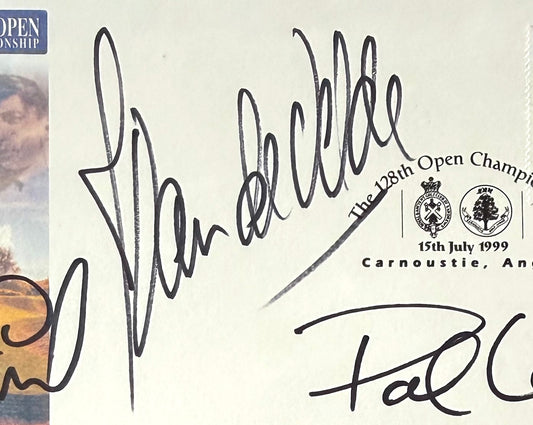 OPEN
ONSHIP
Van de Velde
The 128th Open Champi
15th July 1999
Carnoustie, An
Pal